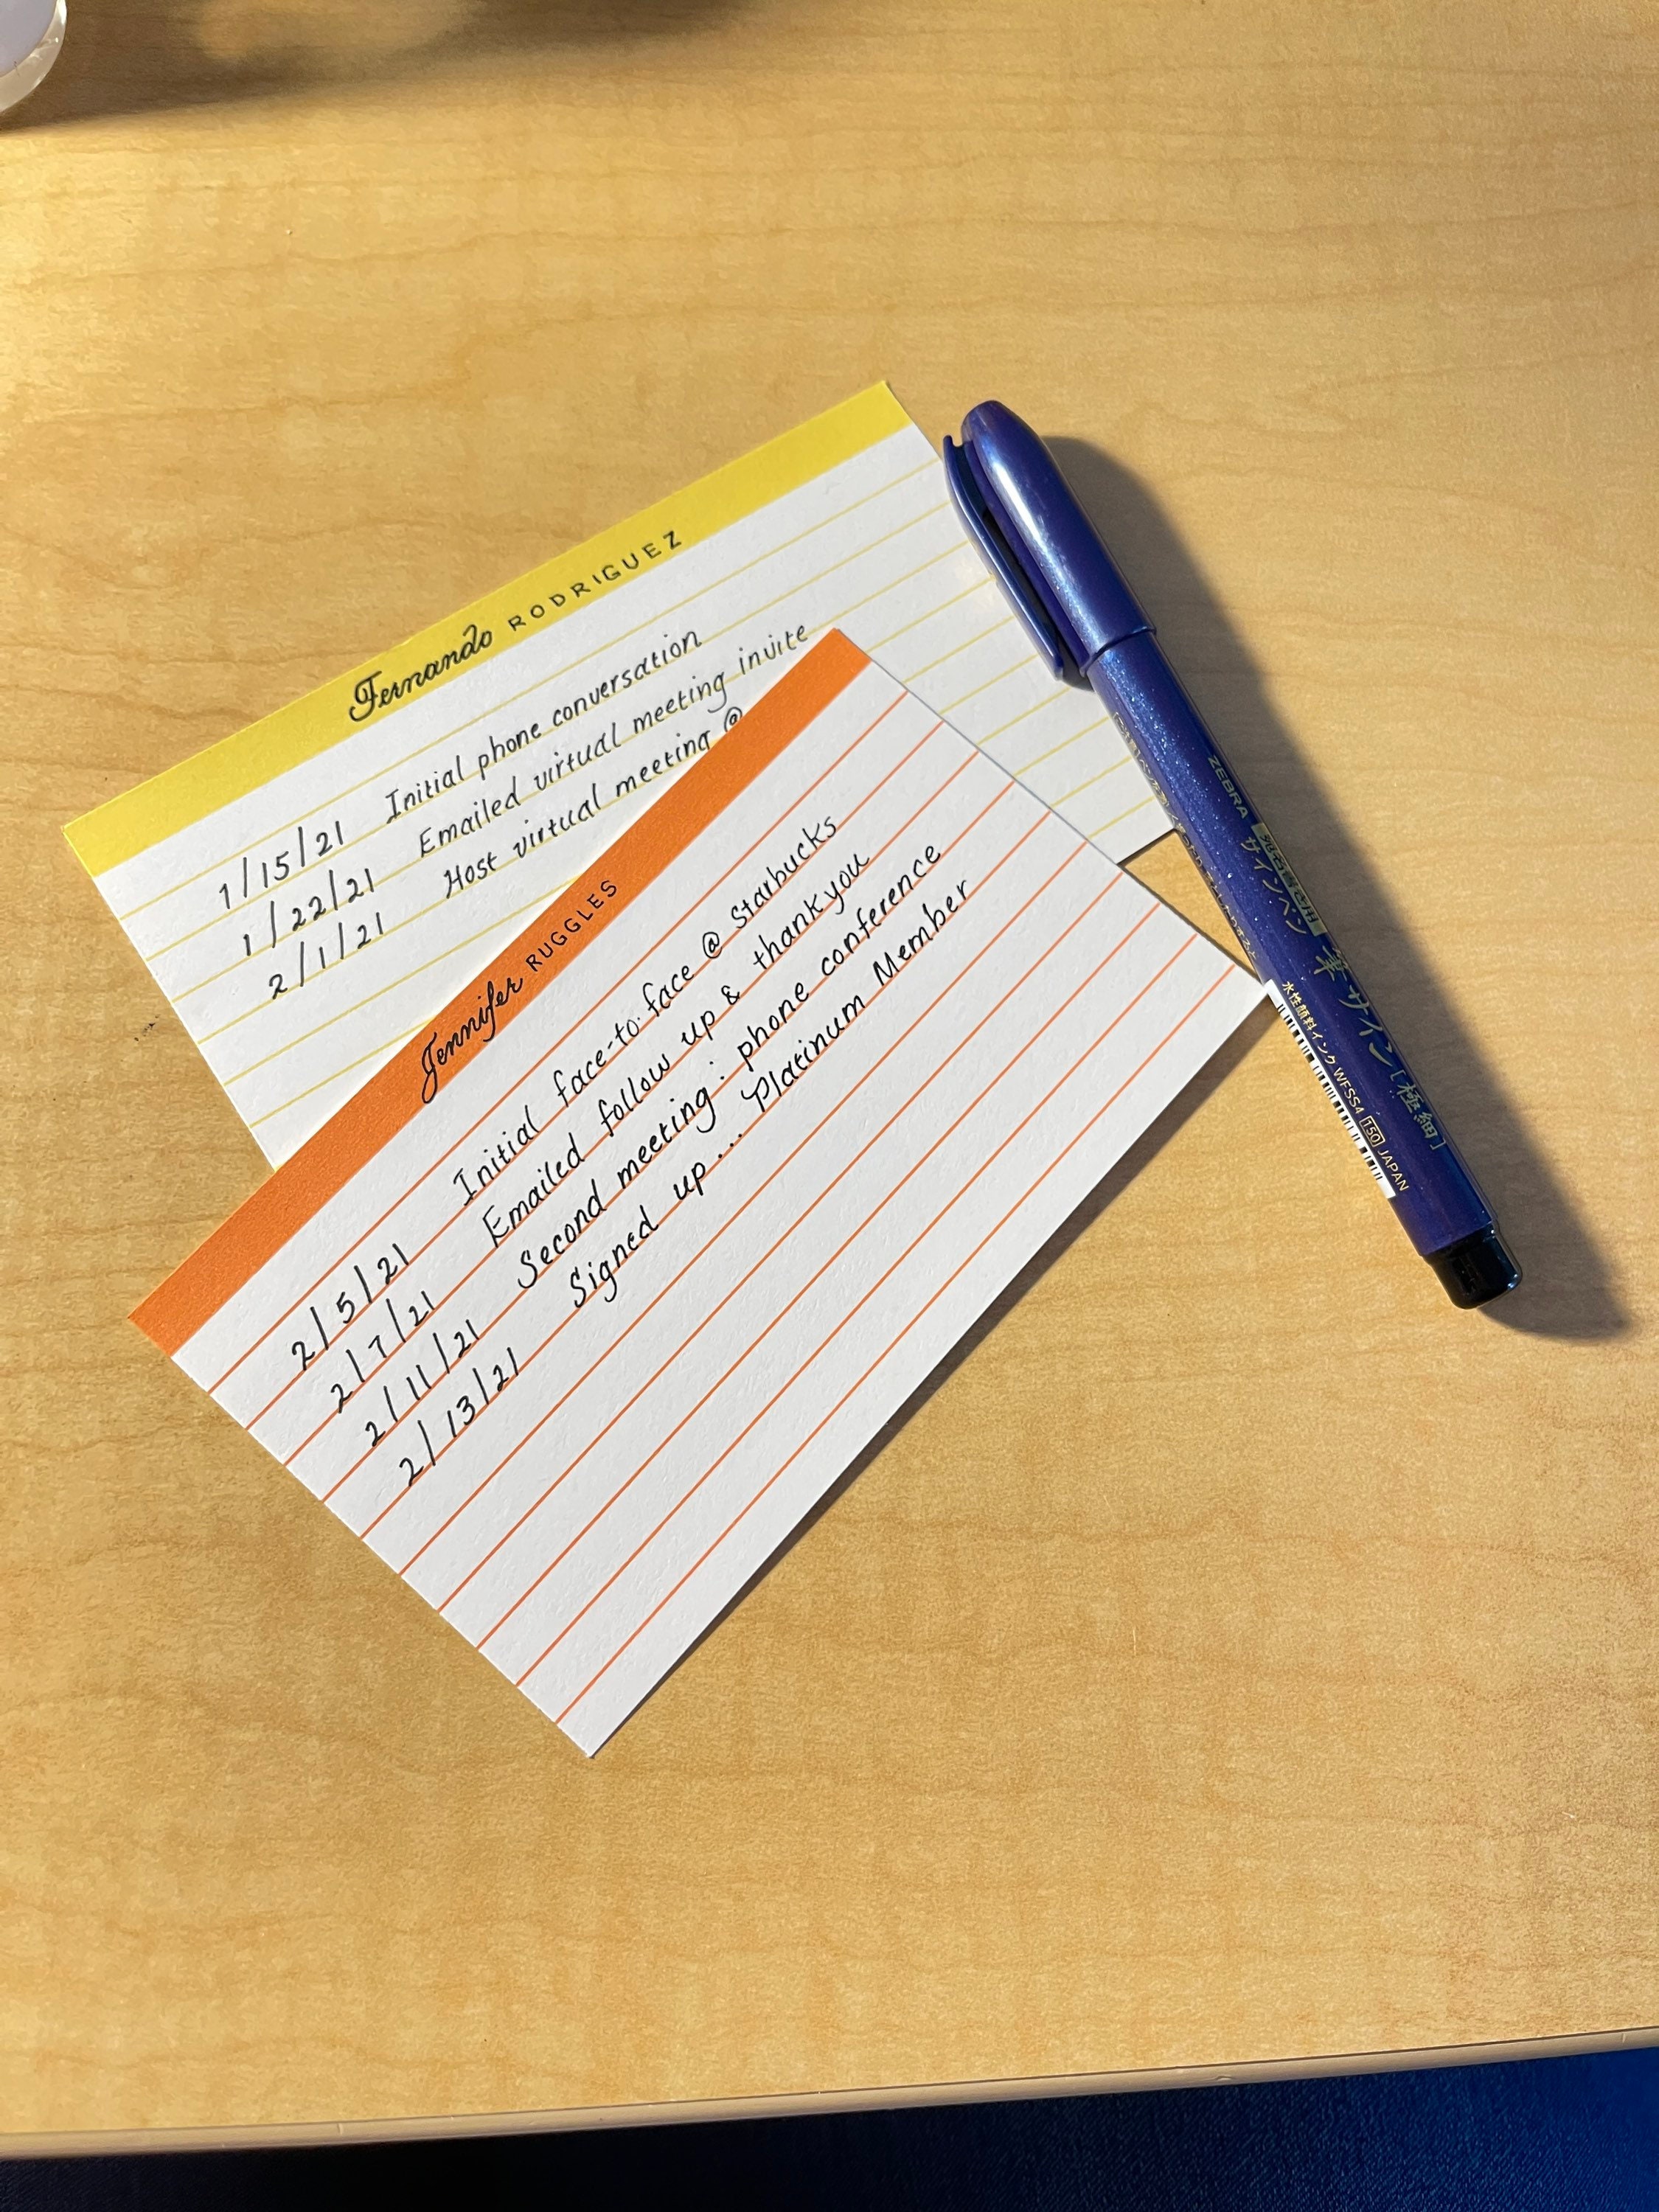 Fernando RODRIGUEZ
1/15/21 Initial phone conversation
1/22/21 Emailed virtual meeting invite
2/1/21 Host virtual meeting @
Jennifer RUGGLES
2/5/21 Initial face-to-face @ Starbucks
2/7/21 Emailed follow up & thank you
2/11/21 Second meeting: phone conference
2/13/21 Signed up... Platinum Member
ZEBRA
サインペン
筆サイン[極細]
水性顔料インク WFSS4 150 JAPAN